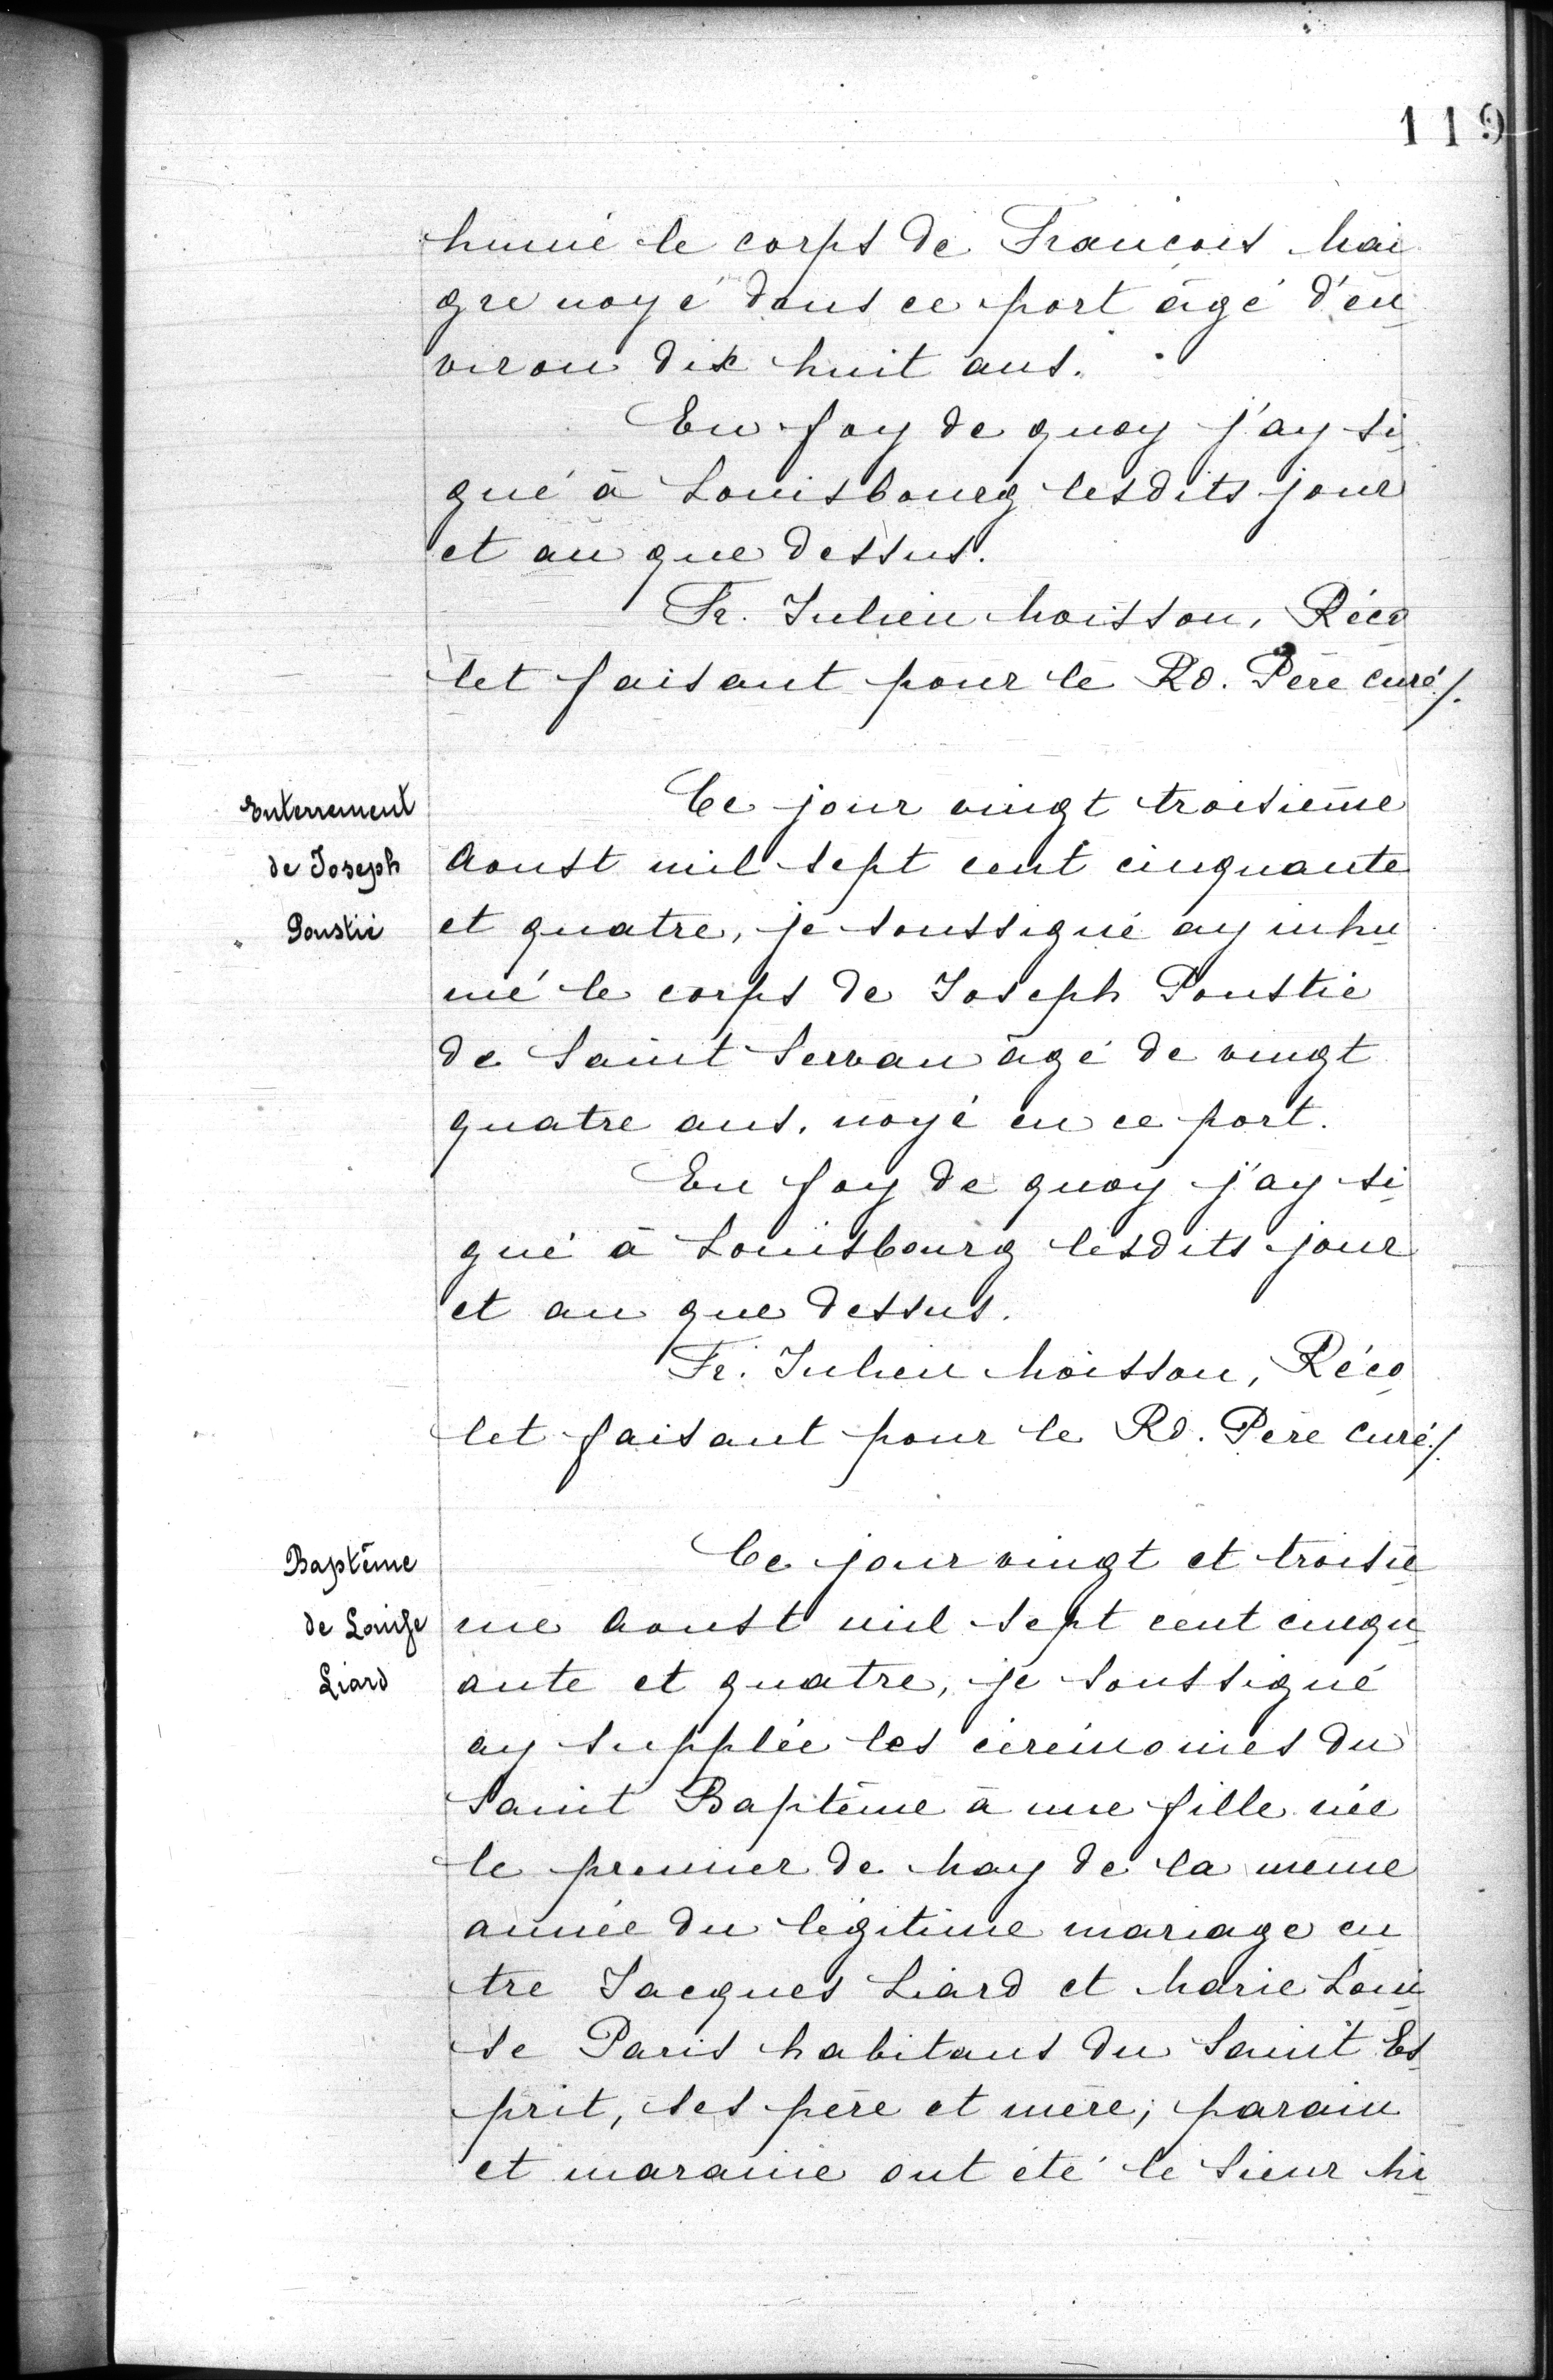 119
humé le corps de François Mai
gre noyé dans ce port âgé d'en
viron dix huit ans.
En foy de quoy j'ay si
gné à Louisbourg lesdits jour
et an que dessus.
Fr. Julien Moisson, Réco
let faisant pour le Rd. Père curé/.
Enterrement
de Joseph
Poustié
Ce jour vingt troisième
Aoust mil sept cent cinquante
et quatre, je soussigné ay inhu
mé le corps de Joseph Poustié
de Saint Servan âgé de vingt
quatre ans, noyé en ce port.
En foy de quoy j'ay si
gné à Louisbourg lesdits jour
et an que dessus.
Fr. Julien Moisson, Réco
let faisant pour le Rd. Père curé/.
Baptême
de Louise
Liard
Ce jour vingt et troisiè
me Aoust mil sept cent cinqu
ante et quatre, je soussigné
ay supplée les cérémonies du
Saint Baptême à une fille née
le premier de May de la meme
année du légitime mariage en
tre Jacques Liard et Marie Loui
se Paris habitans du Saint Es
prit, ses père et mère; parain
et maraine ont été le Sieur Mi